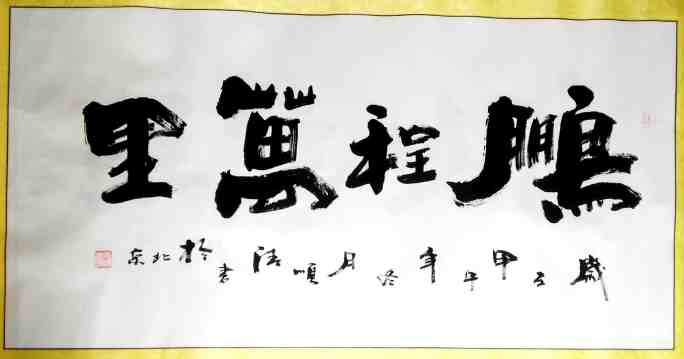 鵬程萬里
歲在甲午年冬月順書於北京